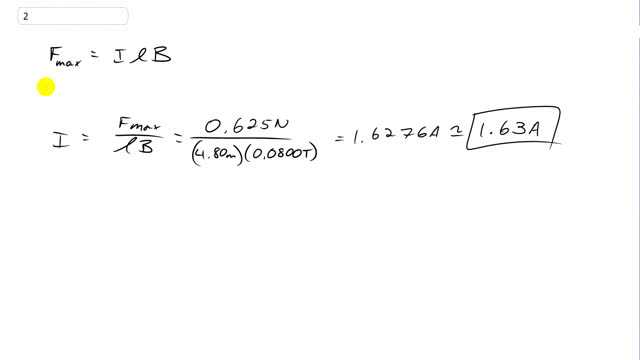 2
F_max = I ℓ B
I = F_max / ℓB = 0.625N / (4.80m)(0.0800T) = 1.6276A ≃ 1.63A